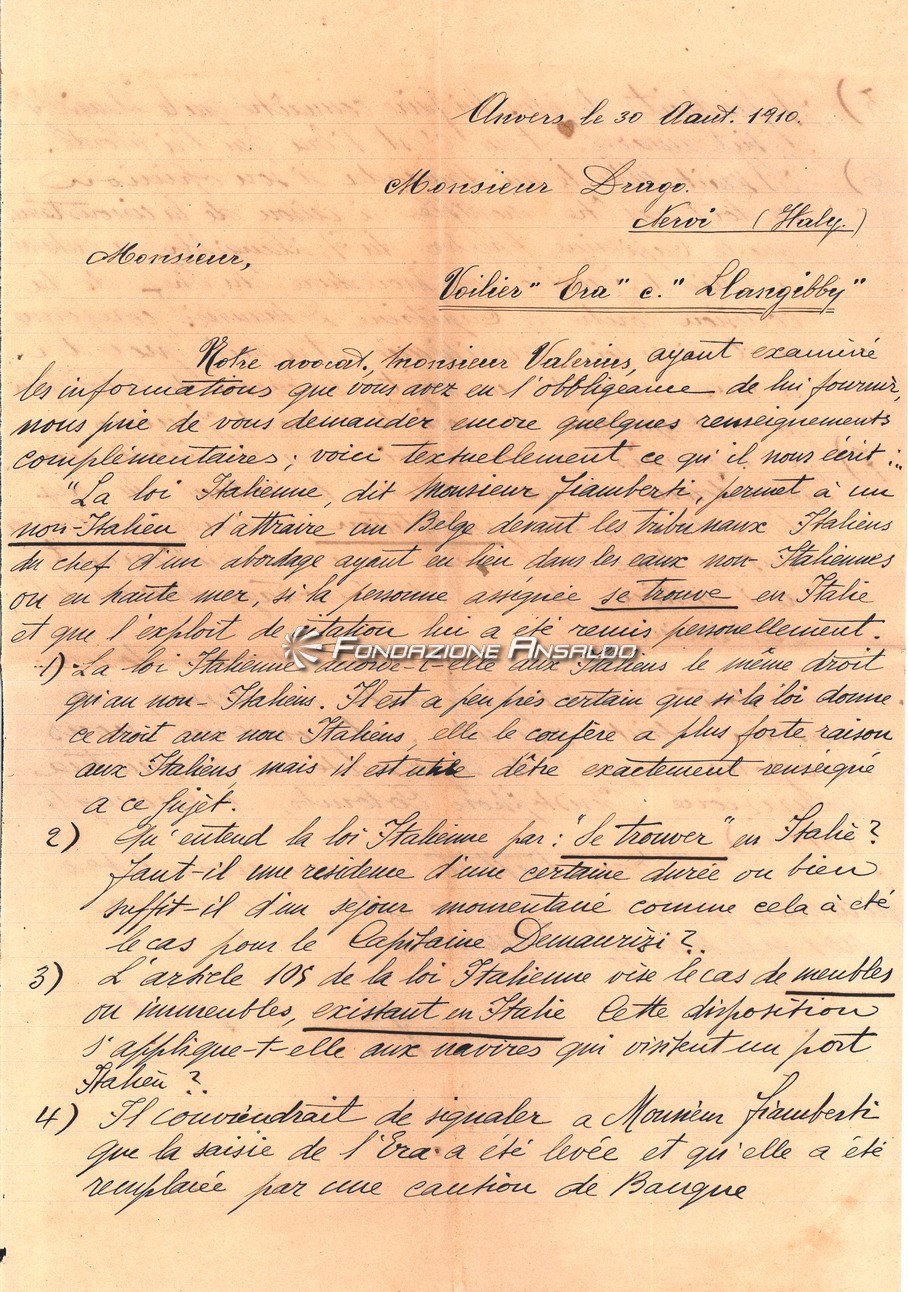 Anvers le 30 Aout. 1910.
Monsieur Drago.
Nervi (Italy.)
Monsieur,
Voilier "Era" c. "Llangibby"
Notre avocat, monsieur Valerius, ayant examiné
les informations que vous avez eu l'obbligeance de lui fournir,
nous prie de vous demander encore quelques renseignements
complémentaires; voici textuellement ce qu'il nous écrit:
"La loi Italienne, dit Monsieur Fiamberti, permet à un
non-Italien d'attraire un Belge devant les tribunaux Italiens
du chef d'un abordage ayant eu lieu dans les eaux non-Italiennes
ou en haute mer, si la personne assignée se trouve en Italie
et que l'exploit de citation lui a été remis personellement.
FONDAZIONE ANSALDO
1) La loi Italienne accorde-t-elle aux Italiens le même droit
qu'au non-Italiens. Il est a peu près certain que si la loi donne
ce droit aux non Italiens, elle le confère a plus forte raison
aux Italiens mais il est utile d'être exactement renseigné
a ce sujet.
2) Qu'entend la loi Italienne par: "Se trouver" en Italie?
Faut-il une residence d'une certaine durée ou bien
suffit-il d'un sejour momentané comme cela a été
le cas pour le Capitaine Demaurizi?
3) L'article 105 de la loi Italienne vise le cas de meubles
ou immeubles, existant en Italie Cette disposition
s'applique-t-elle aux navires qui visitent un port
Italien?
4) Il conviendrait de signaler a Monsieur Fiamberti
que la saisie de l'Era a été levée et qu'elle a été
remplacée par une caution de Banque